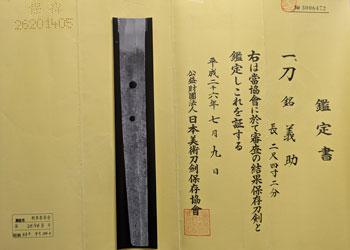 保存
26201405
No 3006472
鑑定書
一、刀 銘 義助
長 二尺四寸二分
右は當協會に於て審査の結果保存刀剣と
鑑定しこれを証する
平成二十六年七月九日
公益財団法人 日本美術刀剣保存協會